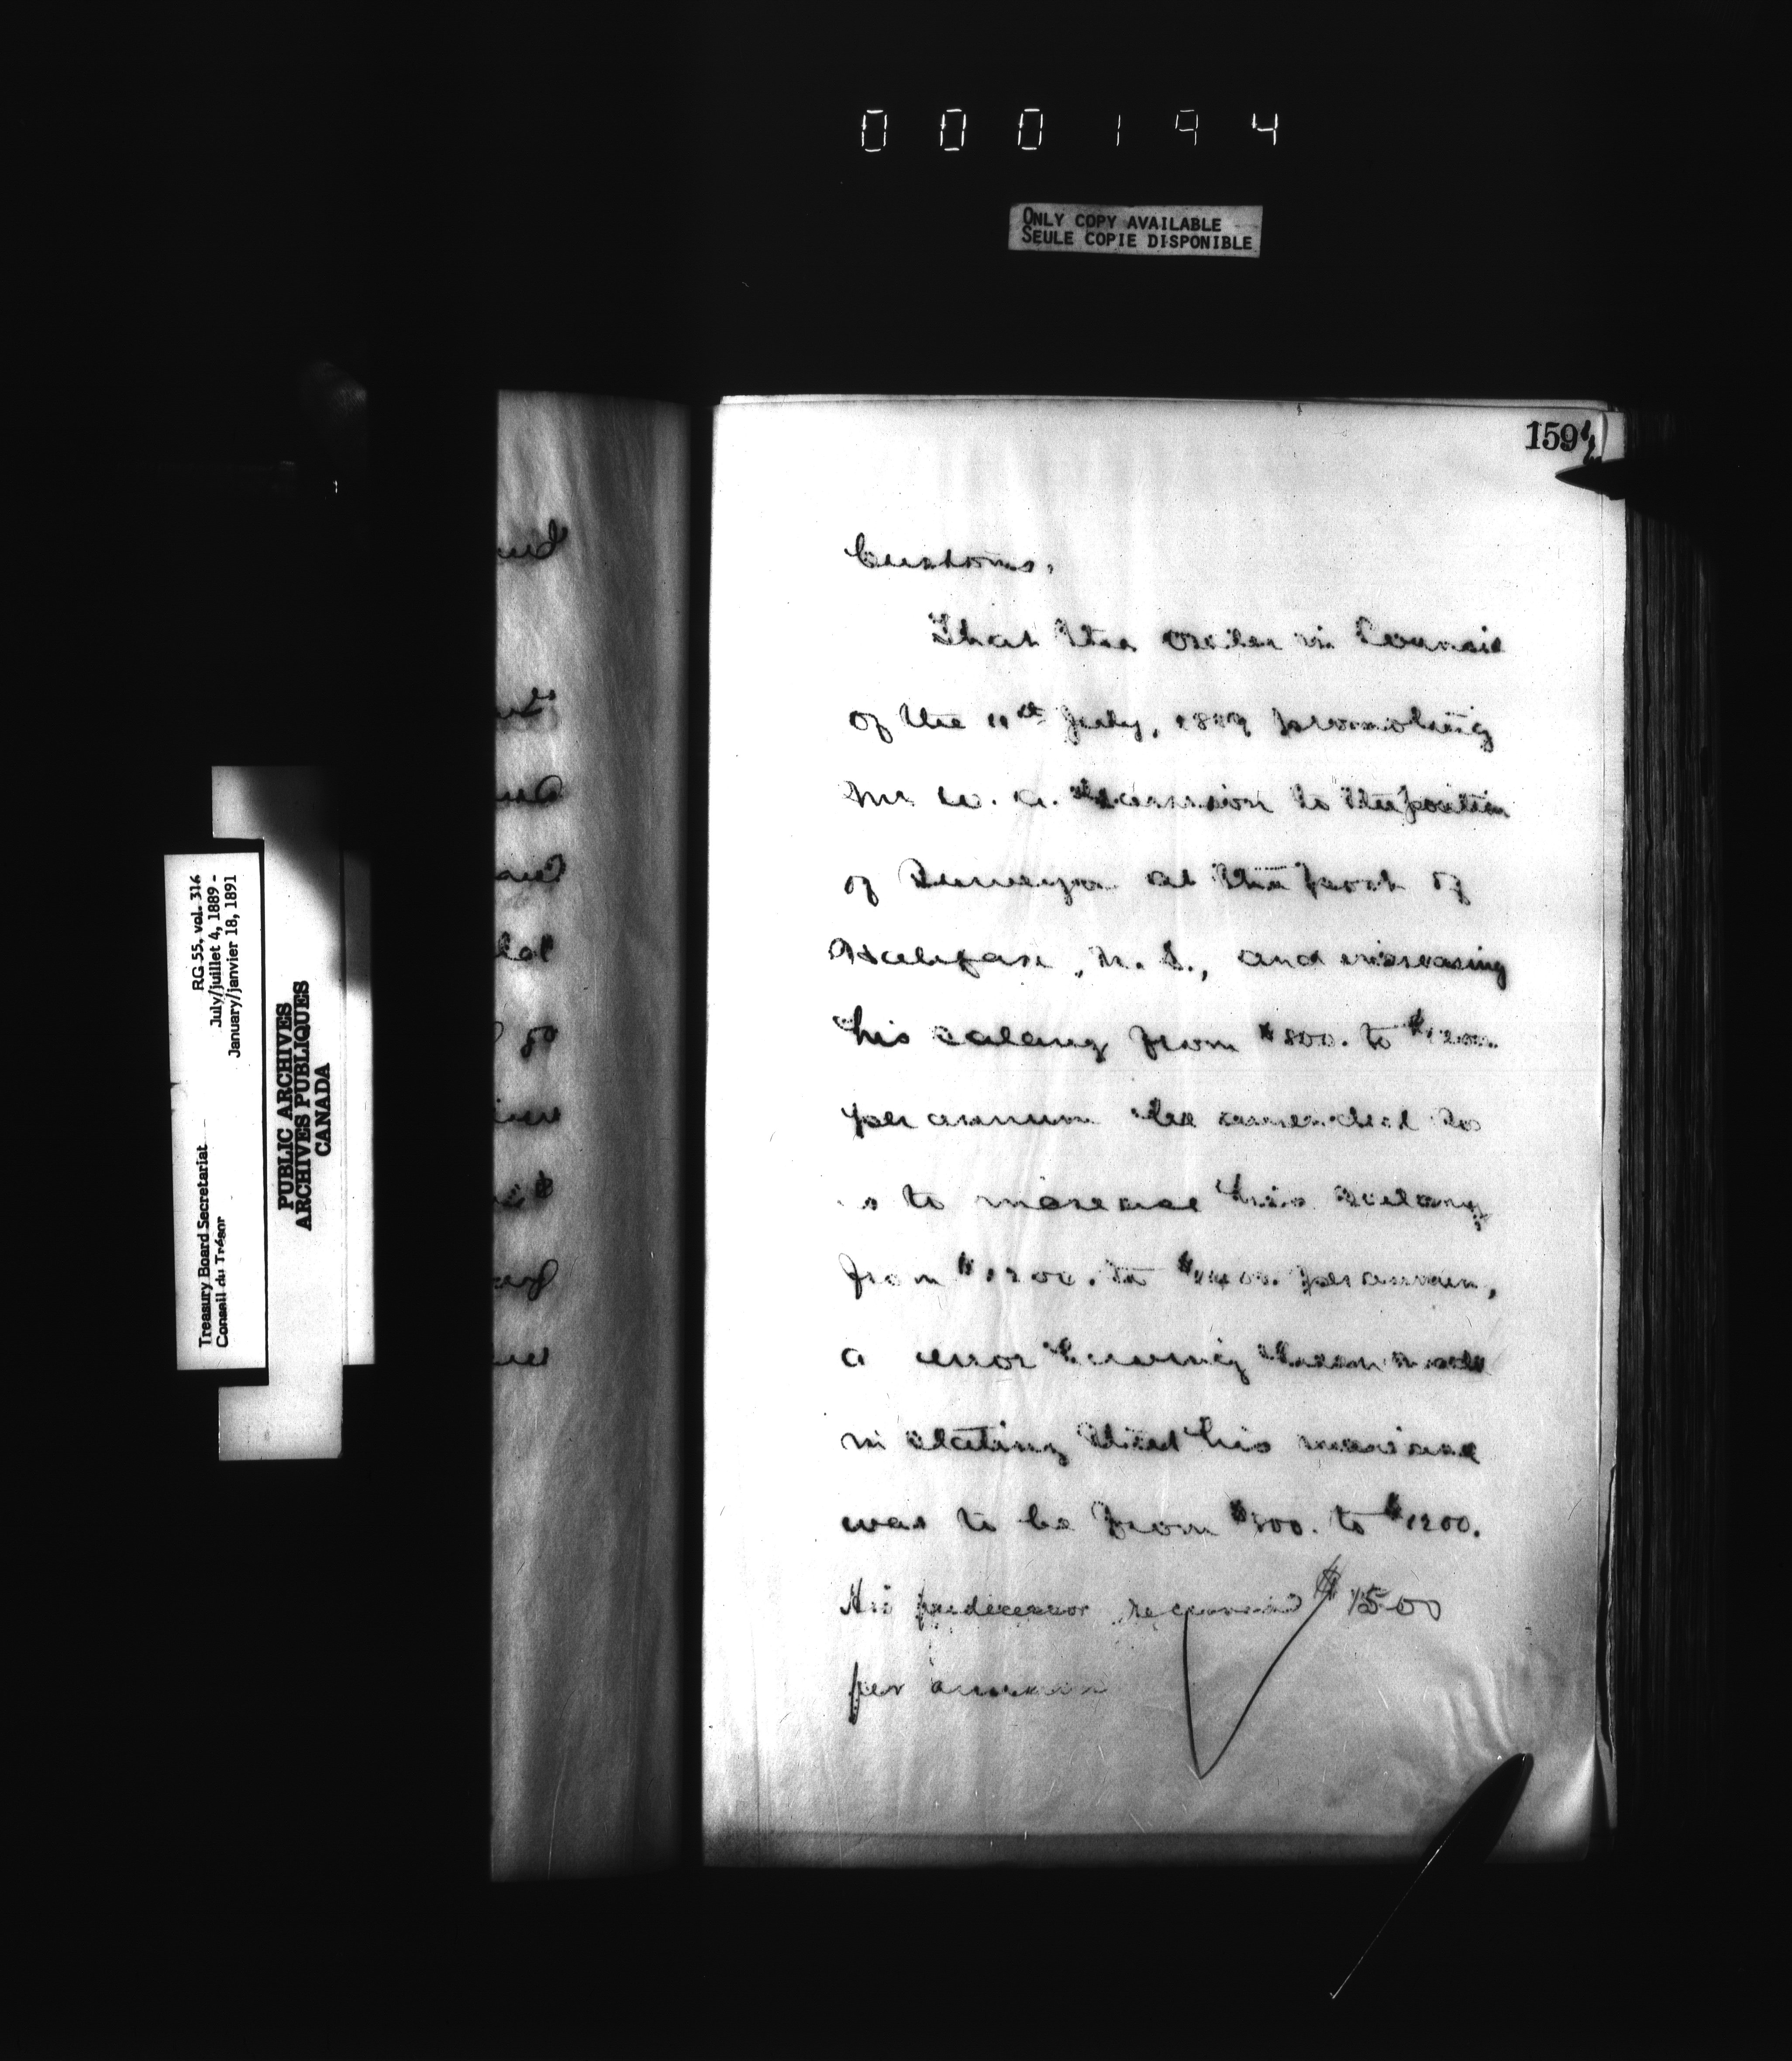 000194
ONLY COPY AVAILABLE
SEULE COPIE DISPONIBLE
159
Customs.
That the Order in Council
of the 11th July, 1889 promoting
Mr W. A. to the position
of Surveyor at the port of
Halifax, N. S., and increasing
his salary from $800. to $1200.
per annum be amended so
as to increase his salary
from $1200. to $1400. per annum,
a error having been made
in stating that his increase
was to be from $800. to $1200.
His predecessor received $1500
per annum
RG 55, vol. 316
July/juillet 4, 1889 -
January/janvier 18, 1891
Treasury Board Secretariat
Conseil du Trésor
PUBLIC ARCHIVES
ARCHIVES PUBLIQUES
CANADA